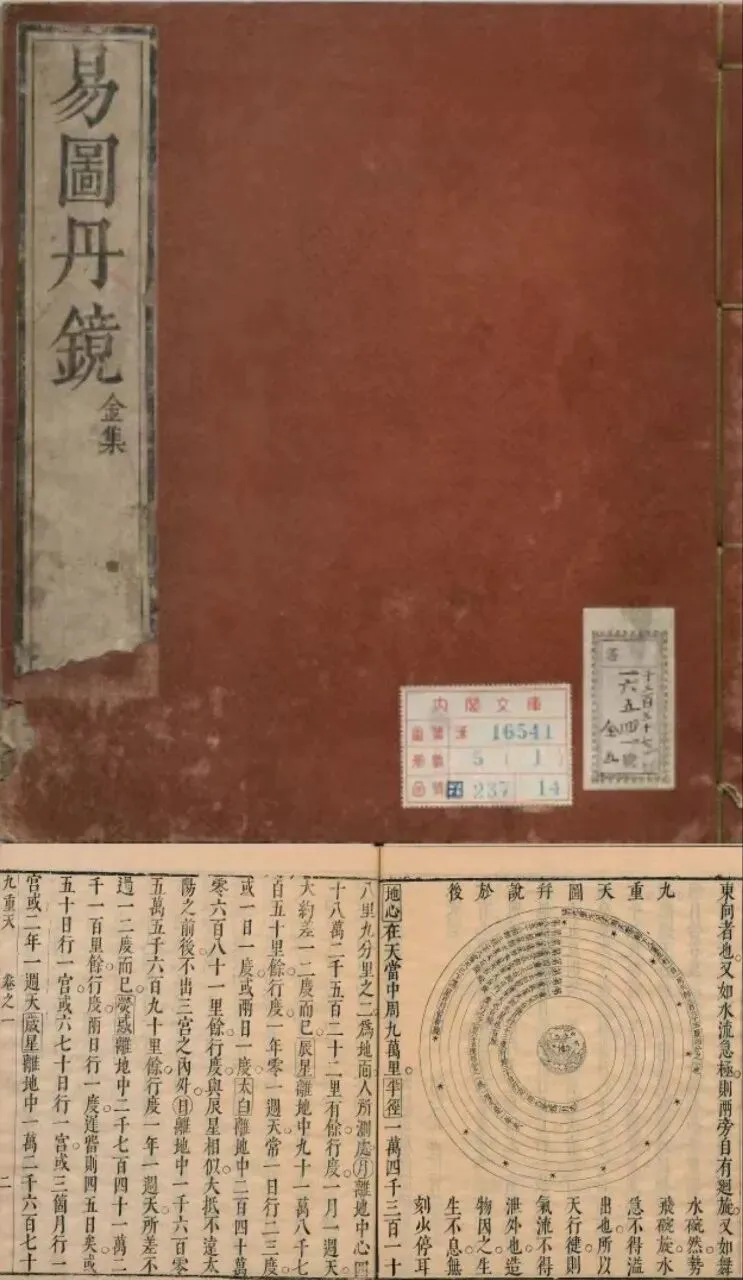 易圖丹鏡
金集
內閣文庫
漢 16541
5 ( 1 )
237 14
一六五四一號
東向者也又如水流急極則兩旁自有廻旋又如舞
水碗然勢
飛碗旋水
急不得溢
出也所以
天行徤則
氣流不得
泄外也造
物因之生
生不息無
刻少停耳
九重天圖幷說於後
地心在天當中周九萬里半徑一萬四千三百一十
八里九分里之二爲地面人所測處月離地中心四
十八萬二千五百二十二里有餘行度一月一週天
大約差一二度而已辰星離地中九十一萬八千七
百五十里餘行度一年零一週天常一日行二三度
或一日一度或兩日一度太白離地中二百四十萬
零六百八十一里餘行度與辰星相似大抵不遠太
陽之前後不出三宮之內外日離地中一千六百零
五萬五千六百九十里餘行度一年一週天所差不
過一二度而已熒惑離地中二千七百四十一萬二
千一百里餘行度兩日行一度遲畱則四五日矣或
五十日行一宮或六七十日行一宮或三箇月行一
宮或二年一週天歲星離地中一萬二千六百七十
九重天 卷之一 二